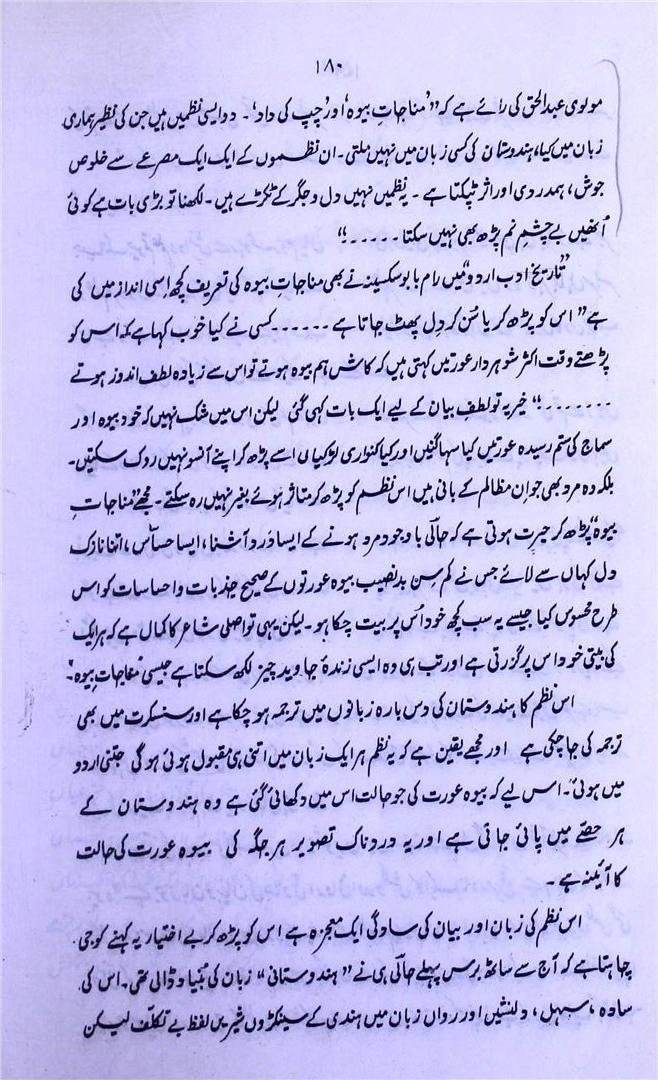 ۱۸۰
مولوی عبدالحق کی رائے ہے کہ ”’مناجاتِ بیوہ‘ اور ’چپ کی داد‘۔ دو ایسی نظمیں ہیں جن کی نظیر ہماری
زبان میں کیا، ہندوستان کی کسی زبان میں نہیں ملتی۔ ان نظموں کے ایک ایک مصرعے سے خلوص
جوش، ہمدردی اور اثر ٹپکتا ہے۔ یہ نظمیں نہیں دل و جگر کے ٹکڑے ہیں۔ لکھنا تو بڑی بات ہے کوئی
اُنھیں بے چشمِ نم پڑھ بھی نہیں سکتا۔۔۔۔۔!“
”تاریخ ادب اردو“ میں رام بابو سکسینہ نے بھی مناجاتِ بیوہ کی تعریف کچھ اِسی انداز میں کی
ہے ”اس کو پڑھ کر یا سُن کر دِل پھٹ جاتا ہے۔۔۔۔۔۔کسی نے کیا خوب کہا ہے کہ اس کو
پڑھتے وقت اکثر شوہردار عورتیں کہتی ہیں کہ کاش ہم بیوہ ہوتے تو اس سے زیادہ لطف اندوز ہوتے
۔۔۔۔۔۔۔!“ خیر یہ تو لطفِ بیان کے لیے ایک بات کہی گئی لیکن اس میں شک نہیں کہ خود بیوہ اور
سماج کی ستم رسیدہ عورتیں کیا سہاگنیں اور کیا کنواری لڑکیاں اسے پڑھ کر اپنے آنسو نہیں روک سکتیں۔
بلکہ وہ مرد بھی جو اِن مظالم کے بانی ہیں اس نظم کو پڑھ کر متاثر ہوئے بغیر نہیں رہ سکتے۔ مجھے ”مناجاتِ
بیوہ“ پڑھ کر حیرت ہوتی ہے کہ حالیؔ باوجود مرد ہونے کے ایسا درد آشنا، ایسا حسّاس، اتنا نازک
دل کہاں سے لائے جس نے کم سِن بدنصیب بیوہ عورتوں کے صحیح جذبات و احساسات کو اس
طرح محسوس کیا جیسے یہ سب کچھ خود اُس پر بیت چکا ہو۔ لیکن یہی تو اصلی شاعر کا کمال ہے کہ ہر ایک
کی بیتی خود اس پر گزرتی ہے اور تب ہی وہ ایسی زندۂ جاوید چیز لکھ سکتا ہے جیسی ’مناجاتِ بیوہ‘۔
اس نظم کا ہندوستان کی دس بارہ زبانوں میں ترجمہ ہو چکا ہے اور سنسکرت میں بھی
ترجمہ کی جا چکی ہے اور مجھے یقین ہے کہ یہ نظم ہر ایک زبان میں اتنی ہی مقبول ہوئی ہو گی جتنی اردو
میں ہوئی۔ اس لیے کہ بیوہ عورت کی جو حالت اس میں دکھائی گئی ہے وہ ہندوستان کے
ہر حصّے میں پائی جاتی ہے اور یہ دردناک تصویر ہر جگہ کی بیوہ عورت کی حالت
کا آئینہ ہے۔
اس نظم کی زبان اور بیان کی سادگی ایک معجزہ ہے اس کو پڑھ کر بے اختیار یہ کہنے کو جی
چاہتا ہے کہ آج سے ساٹھ برس پہلے حالیؔ ہی نے ”ہندوستانی“ زبان کی بُنیاد ڈالی تھی۔ اس کی
سادہ، سہل، دلنشیں اور رواں زبان میں ہندی کے سینکڑوں شیریں لفظ بے تکلّف لیکن